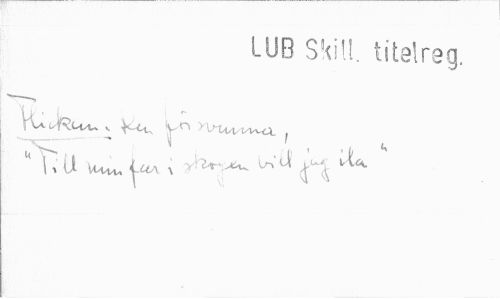 LUB Skill. titelreg.
Flickan. Den försvunna,
"Till min far i skogen vill jag ila"